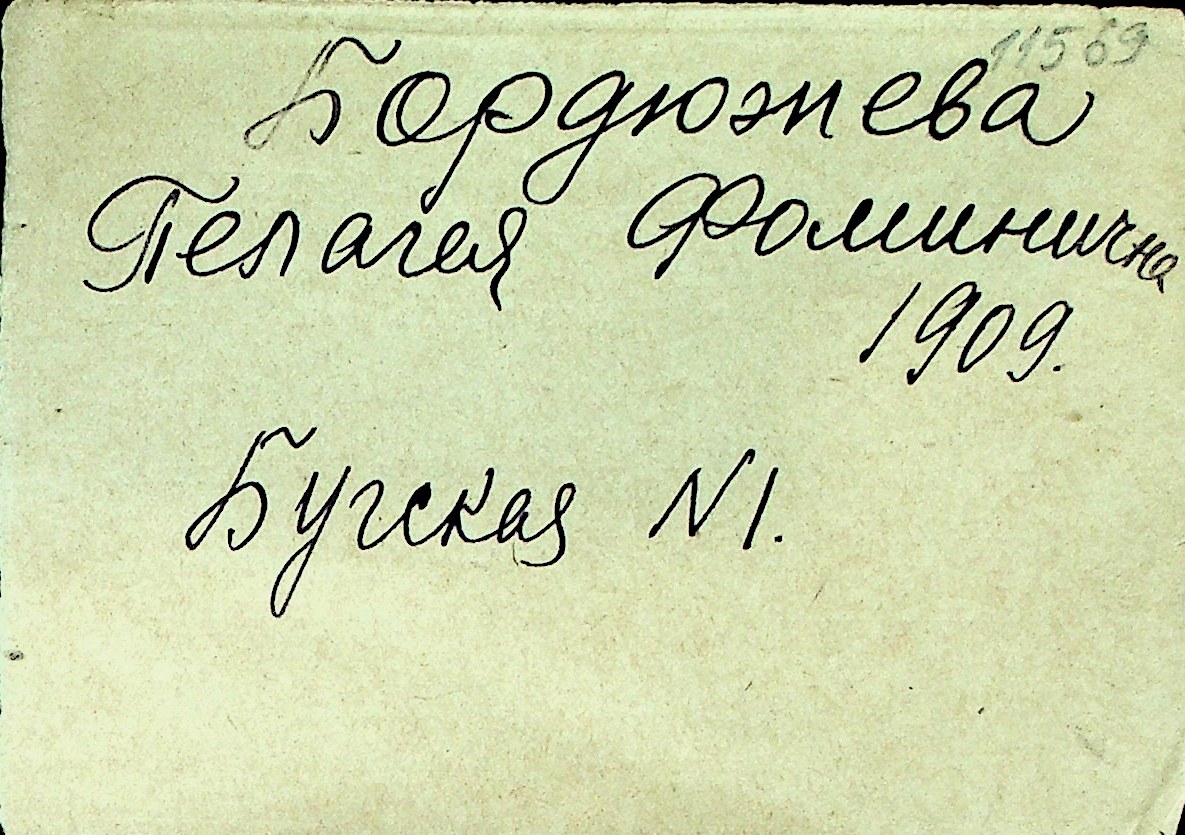 11569
Бордюжева
Пелагея Фоминична
1909.
Бугская N1.